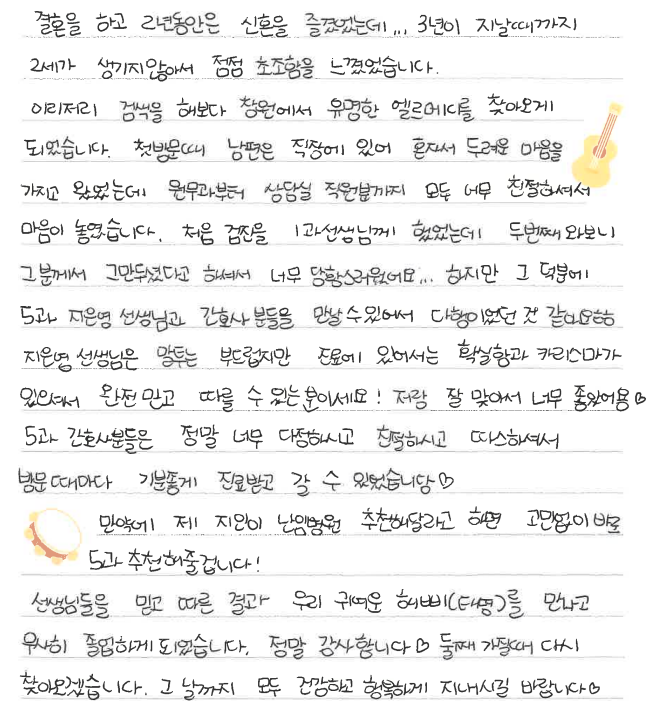 결혼을 하고 2년동안은 신혼을 즐겼었는데... 3년이 지날때까지
2세가 생기지않아서 점점 초조함을 느꼈었습니다.
이리저리 검색을 해보다 창원에서 유명한 엘르메디를 찾아오게
되었습니다. 첫방문때 남편은 직장에 있어 혼자서 두려운 마음을
가지고 왔었는데 원무과부터 상담실 직원분까지 모두 너무 친절하셔서
마음이 놓였습니다. 처음 검진을 1과선생님께 했었는데 두번째 와보니
그분께서 그만두셨다고 하셔서 너무 당황스러웠어요... 하지만 그 덕분에
5과 지은영 선생님과 간호사 분들을 만날 수 있어서 다행이었던 것 같아요ㅎㅎ
지은영 선생님은 말투는 부드럽지만 진료에 있어서는 확실함과 카리스마가
있으셔서 완전 믿고 따를 수 있는 분이세요! 저랑 잘 맞아서 너무 좋았어용♡
5과 간호사분들은 정말 너무 다정하시고 친절하시고 따스하셔서
방문 때마다 기분좋게 진료받고 갈 수 있었습니당♡
만약에 제 지인이 난임병원 추천해달라고 하면 고민없이 바로
5과 추천해줄겁니다!
선생님들을 믿고 따른 결과 우리 귀여운 해삐(태명)를 만나고
무사히 졸업하게 되었습니다. 정말 감사합니다♡ 둘째 가질때 다시
찾아오겠습니다. 그 날까지 모두 건강하고 행복하게 지내시길 바랍니다♡